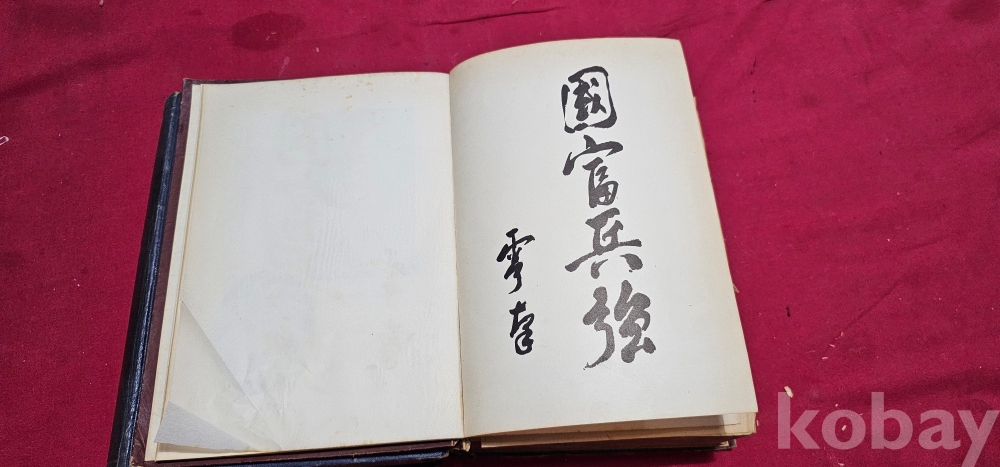 國富兵強
雩南
kobay